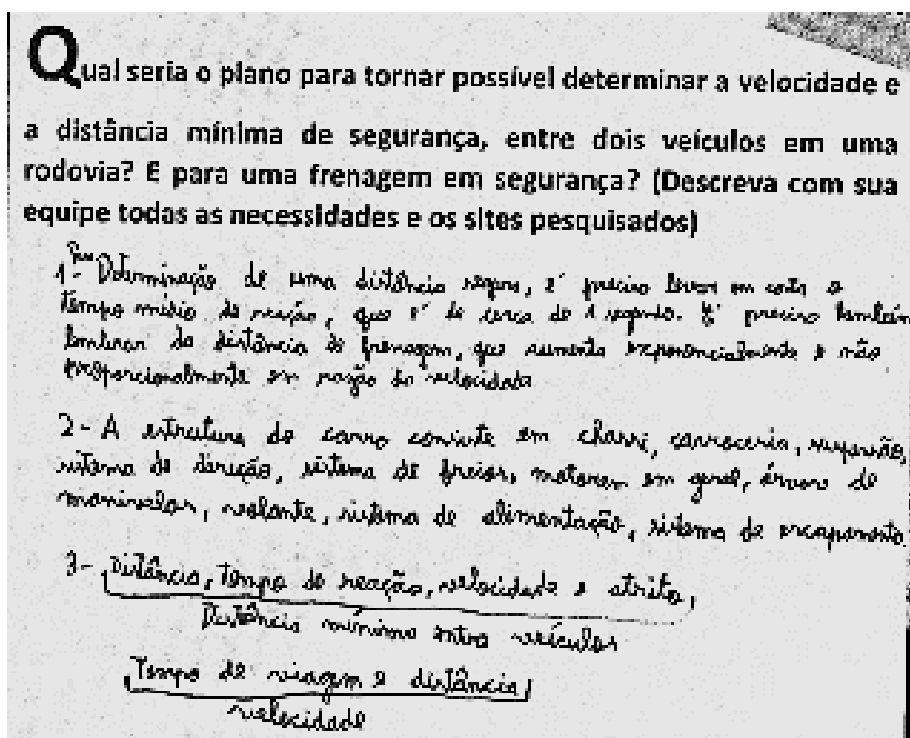 Qual seria o plano para tornar possível determinar a velocidade e
a distância mínima de segurança, entre dois veículos em uma
rodovia? E para uma frenagem em segurança? (Descreva com sua
equipe todas as necessidades e os sites pesquisados)
1- Para Determinação de uma distância segura, é preciso levar em conta o
tempo médio de reação, que é de cerca de 1 segundo. É preciso também
lembrar da distância de frenagem, que aumenta exponencialmente e não
proporcionalmente em razão da velocidade
2- A estrutura do carro consiste em chassi, carroceria, suspensão,
sistema de direção, sistema de freios, motores em geral, árvore de
manivelas, volante, sistema de alimentação, sistema de escapamento.
3- Distância, tempo de reação, velocidade e atrito,
Distância mínima entre veículos
Tempo de viagem e distância
velocidade